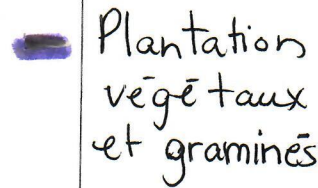 Plantation
végétaux
et graminés